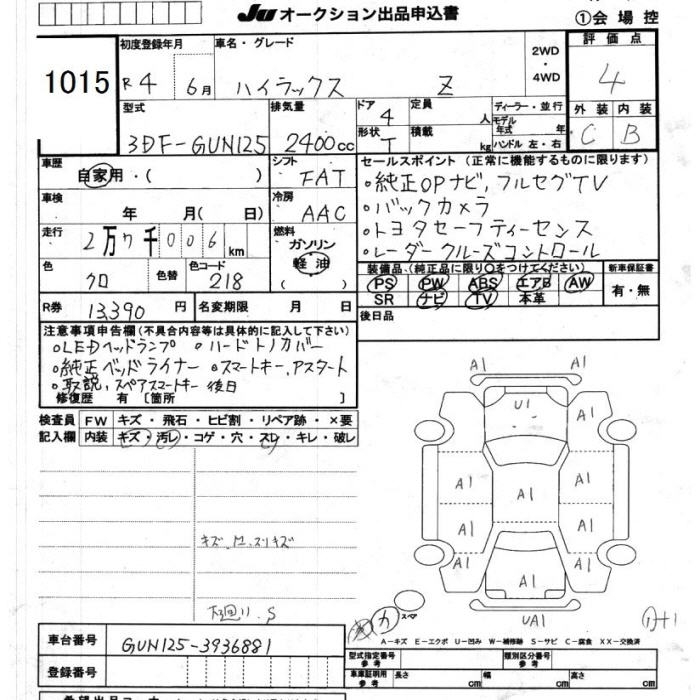 JU オークション出品申込書
①会場控
1015
初度登録年月
R4 6月
車名・グレード
ハイラックス Z
2WD・4WD
評価点
4
型式
3DF-GUN125
排気量
2400cc
ドア
4
形状
T
定員 人
積載 kg
ディーラー・並行
モデル年式 年
ハンドル 左・右
外装 内装
C B
車歴
自家用・( )
シフト
FAT
セールスポイント (正常に機能するものに限ります)
・純正OPナビ, フルセグTV
・バックカメラ
・トヨタセーフティーセンス
・レーダークルーズコントロール
車検
年 月( 日)
冷房
AAC
走行
2万7千006km
燃料
ガソリン
軽油
( )
色
クロ
色替
色コード
218
装備品(純正品に限り○をつけてください)
PS PW ABS エアB AW
SR ナビ TV 本革
新車保証書
有・無
R券 13,390円
名変期限 月 日
後日品
注意事項申告欄(不具合内容等は具体的に記入して下さい)
・LEDヘッドランプ ・ハードトノカバー
・純正ベッドライナー ・スマートキー, Aスタート
・取説, スペアスマートキー 後日
修復歴 有 [箇所 ]
検査員記入欄
FW キズ・飛石・ヒビ割・リペア跡・×要
内装 キズ・汚レ・コゲ・穴・スレ・キレ・破レ
キズ・凹・スリキズ
下廻り.S
A1 A1
U1
A1 A1
A1 A1 A1
A1 A1
A1 A1 A1
A1 UA1
カ スペア
A-キズ E-エクボ U-凹み W-補修跡 S-サビ C-腐食 XX-交換済
車台番号 GUN125-3936881
登録番号
型式指定番号 参考
類別区分番号 参考
車庫証明用 参考
長さ cm 幅 cm 高さ cm